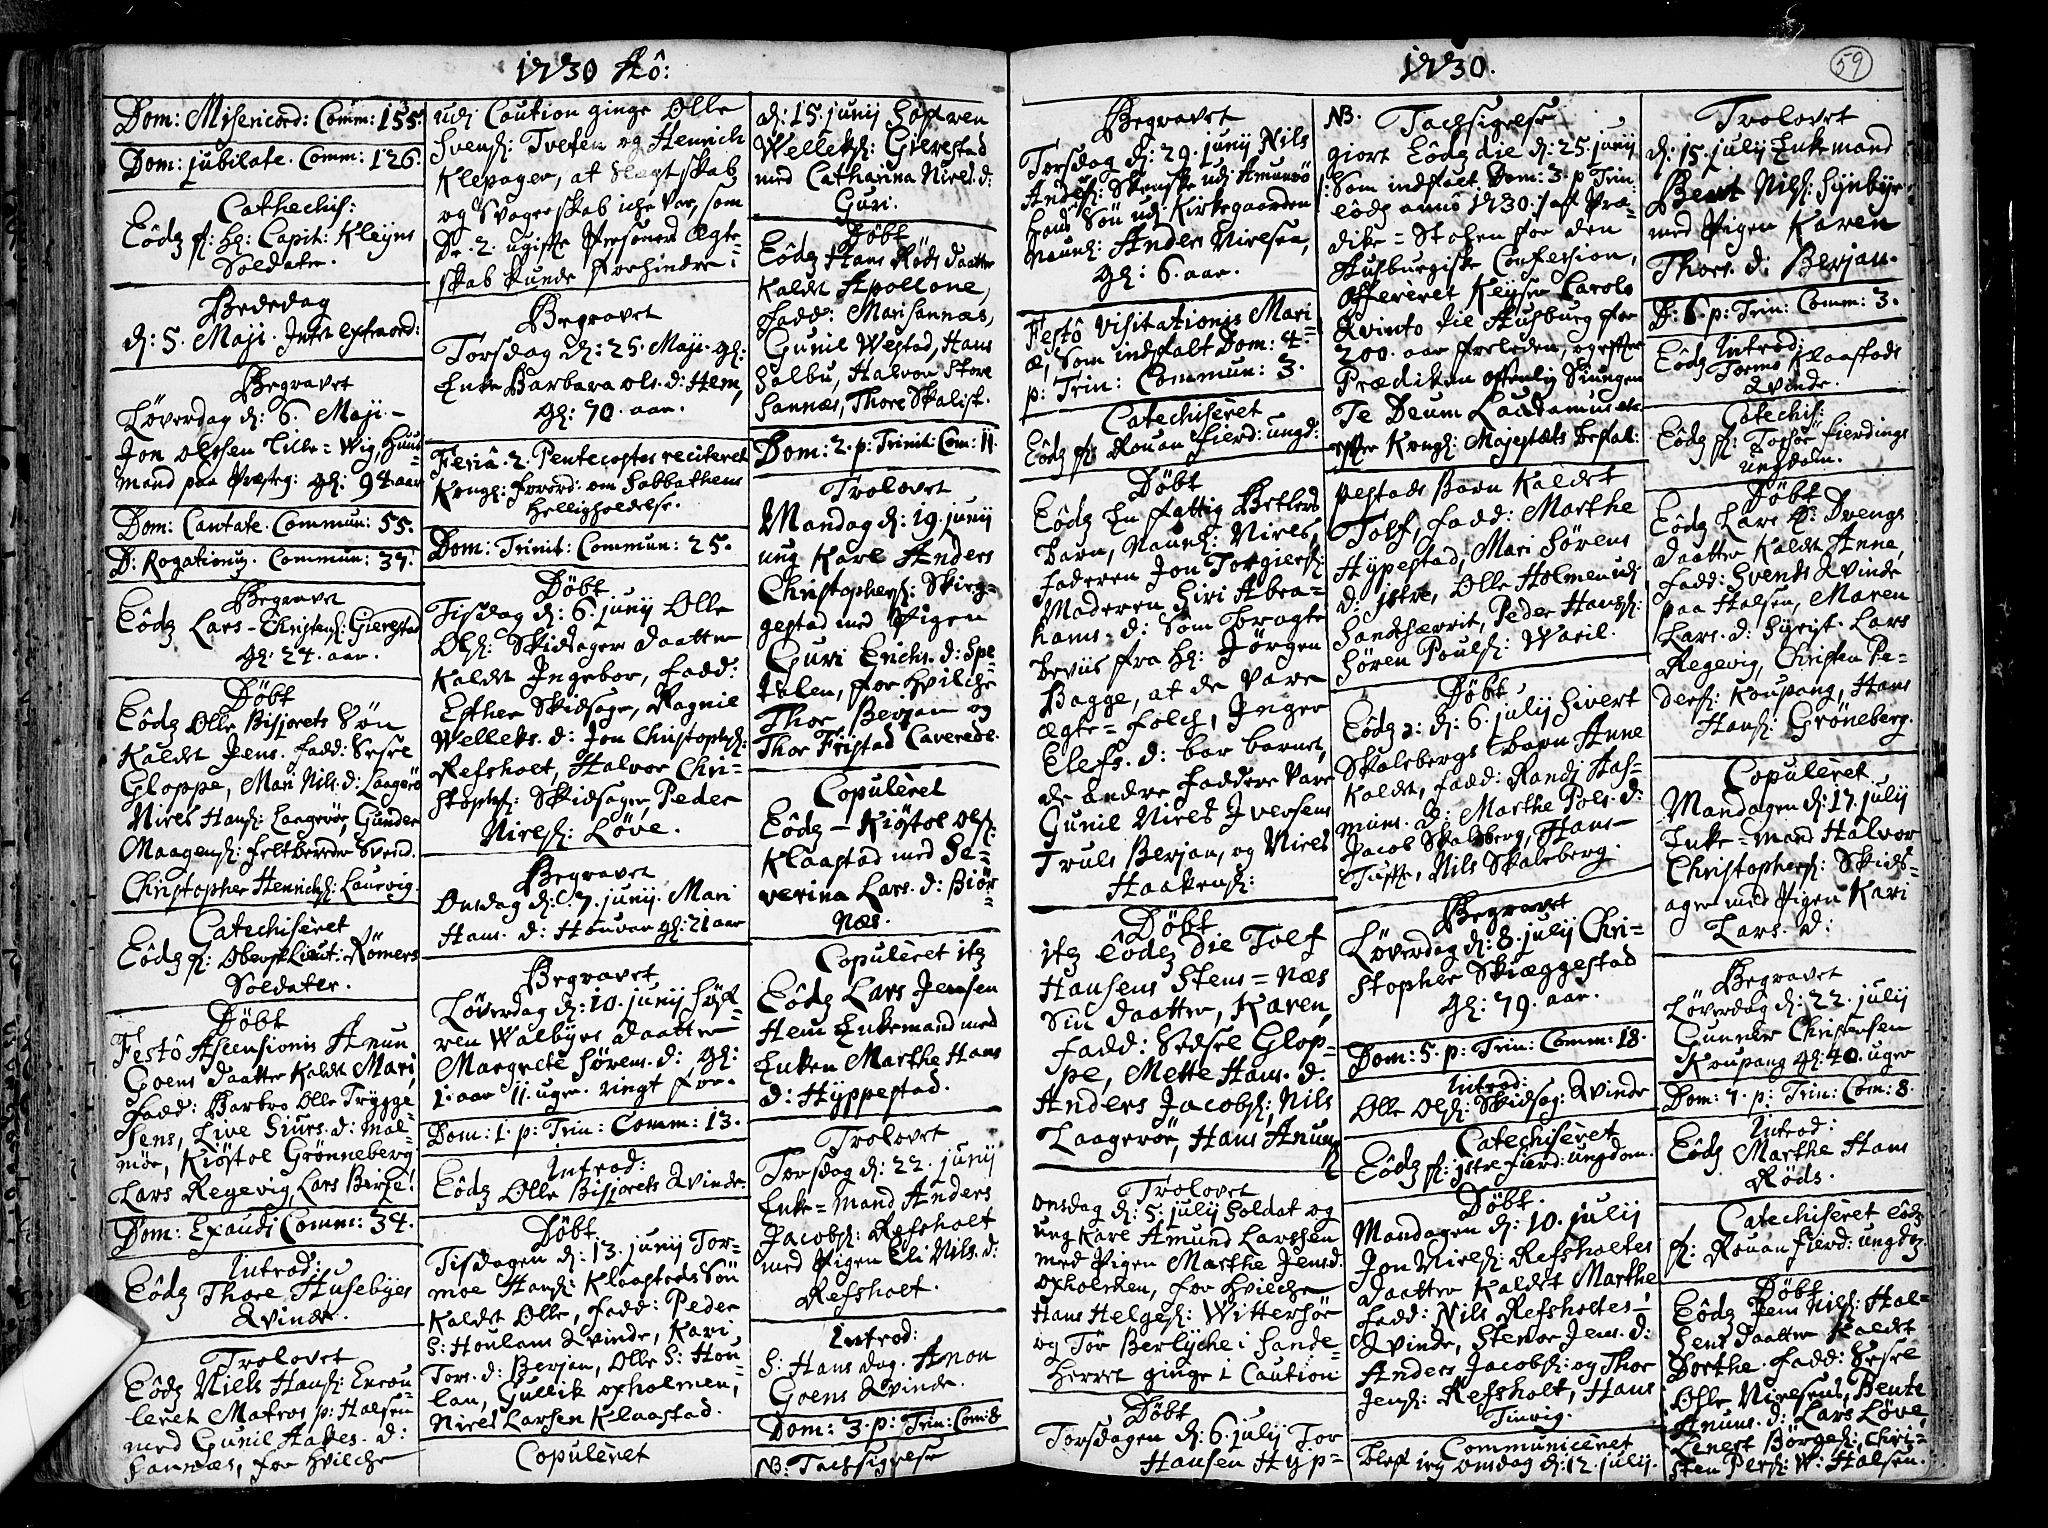 1730 Aô:
Dom: Misericord: Comm: 155.
Dom: jubilate. Comm: 126.
Cathechis:
Eôdẽ f: hl: Capit: Kleyns
Soldater.
Bededag
d: 5. Maji. Intet extraord:
Begravet
Løverdag d: 6. Maji.
Jon Olssen Lille=Wig, Huus=
mand paa Præsteg: gl: 94 aar
Dom: Cantate. Commun: 55.
D: Rogationũ. Commun: 37.
Begravet
Eôdẽ Lars Christens: Gierestad
gl: 24. aar.
Døbt
Eôdẽ Olle Bisjorets Søn
kaldt Jens. fadd: Sessel
Gloppe, Mari Nils. d: Laagerø
Niels Hans: Laagerøe, Gunder
Maagens: feltbereder Svend.
Christopher Henrichs: Laurvig.
Catechiseret
Eôdẽ f: Oberst Lieut: Rømers
Soldater.
Døbt
Festô Ascensionis Anun
Goens daatter kaldt Mari,
fadd: Barbro Olle Trygge=
sens, Live Siurs. d: Mal=
møe, Kiøstol Grønneberg,
Lars Regevig, Lars Berje.
Dom: Exaudi Comm: 34.
Introd:
Eôdẽ Thore Husebyes
Qvinde.
Trolovet
Eôdẽ Niels Hans: Enrou=
leret Matros p: Halsen
med Gunil Aakes. d:
Sannæs, for hvilche
udj Caution ginge Olle
Svens: Tveten og Henrich
Klepager, at Slegtskab
og Svogerskab iche var, som
De 2. ugifte Personers Ægte=
skab kunde forhindre.
Begravet
Torsdag d: 25. Maji. gl:
Enke Barbara Ols. d: Hem,
gl: 70. aar.
Feriâ 2. Pentecostes reciteret
Kongl: forord: om Sabbathens
Helligholdelse.
Dom: Trinit: Commun: 25.
Døbt
Tisdag d: 6. junij Olle
Ols: Skidsagers daatter
kaldt Ingebor, fadd:
Esther Skidsager, Ragnil
Welleks. d: Jon Christophs:
Refsholt, Halvor Chri=
stophs: Skidsager, Peder
Niels: Løve.
Begravet
Onsdag d: 7. junij. Mari
Hans. d: Hauvar gl: 21 aar
Begravet
Løverdag d: 10. junij Søf=
ren Walbyes daatter
Margrete Sørens. d: gl:
1. aar 11. uger. ungt for.
Dom: 1. p: Trin: Comm: 13.
Introd:
Eôdẽ Olle Bisjorets Qvinde.
Døbt
Tisdagen d: 13. junij Tor=
moe Hans: Klaasteds Søn
kaldet Olle, fadd: Peder
S: Houlans Qvinde, Kari
Tors. d: Berjan, Olle S: Hou=
lan, Gullik opholmen,
Niels Larsen Klaastad.
Copuleret
d: 15. junij Søfren
Welleks: Gierestad
med Catharina Niels. d:
Guri.
Døbt
Eôdẽ Hans Røds daatter
kaldt Apollone,
fadd: Mari Sannæs,
Gunil Westad, Hans
Solbu, Halvor Store
Sannæs, Thore Skalist.
Dom: 2. p: Trinit: Com: 11
Trolovet
Mandag d: 19. junij
ung Karl Anders
Christophers: Skieg=
gestad med Pigen
Guri Erichs. d: Spe=
jelen, for hvilche
Thor Berjan og
Thor Fristad Caverede.
Copuleret
Eôdẽ Kiøstol Ols:
Klaastad med Se=
verina Lars. d: Biør=
Næs.
Copuleret itẽ
Eôdẽ Lars Jensen
Hem Enkemand med
Enken Marthe Hans
d: Hyppestad.
Trolovet
Torsdag d: 22. junij
Enke=mand Anders
Jacobs: Refsholt
med Pigen Eli Nils. d:
Refsholt.
Introd:
S: Hans dag. Anon
Goens Qvinde.
Dom: 3. p: Trin: Com: 8
NB: Tachsigelse
1730.
59
Begravet
Torsdag d: 29. junij Nils
Anders: Skenske udj Amunrø
hans Søn udj Kirkegaarden
Naunl: Anders Nielsen,
gl: 6. aar.
Festô Visitationis Mari=
æ, som indfalt Dom: 4.
p: Trin: Commun: 3.
Catechiseret
Eôdẽ f: Rouan fierd: ungd:
Døbt
Eôdẽ En fattig Betlers
barn, Naunl: Niels,
faderen Jon Torgiers:
Maderen Siri Abra=
hams. d: som bragte
beviis fra hl: Jørgen
Bagge, at de vare
ægte=folch, Inger
Elefs. d: bar barnet,
de andre faddere vare
Gunil Niels Iversens
Truls Berjan, og Niels
Haakens:
Døbt
itẽ Eôdẽ die Tolf
Hansens Stens=Næs
Sin daatter, Karen,
fadd: Sedsel Glop=
pe, Mette Hans. d:
Anders Jacobs: Nils
Laagerøe, Hans Anuns:
Trolovet
Onsdag d: 5. julij Soldat og
ung Karl Amund Larssen
med Pigen Marthe Jensd.
opholmen, for hvilche
Hans Helges: Wittersøe
og Tor Berlyche i Sande=
herret ginge i Caution
Døbt
Torsdagen d: 6. julij Tor
Hansen Hyp=
NB. Tachsigelse
giort Eôdẽ die d: 25 junij
som indfalt Dom: 3. p Trin:
eôdẽ anno 1730. af Præ=
dike=Stolen for den
Ausburgiske Confession,
offereret Keyser Carolo
Qvinto til Ausburg for
200. aar forleden, og efter
Prædiken offenlig Siungen
Te Deum Laudamus etc.
efter Kongl: Majestæts befal:
pestads barn kaldet
Tolf, fadd: Marthe
Hypestad, Mari Sørens
d: jstre, Olle Holmen udj
Sandehærrit, Peder Hans:
Søren Pouls: Waril.
Døbt
Eôdẽ: d: 6. julij Sivert
Skalsbergs barn Anne
kaldet, fadd: Randj Aas=
muns. d: Marthe Poels. d:
Jacob Skalsberg, Hans
Tufte, Nils Skalsberg.
Begravet
Løverdag d: 8. julij Chri=
stopher Skiæggestad
gl: 79. aar.
Dom: 5. p: Trin: Comm: 18.
Introd:
Olle Ols: Skidsag: Qvinde
Catechiseret
Eôdẽ f: jstre fierd: ungdom.
Døbt.
Mandagen d: 10. julij
Jon Niels: Refsholtes
daatter kaldet Marthe
fadd: Nils Refsholtes
Qvinde, Stenor Jens. d:
Anders Jacobs: og Thor
Jens: Refsholt, Hans
Tinvig.
Communiceret
blef jeg Onsdag d: 12. julij.
Trolovet
d: 15. julij Enkemand
Bent Nils: Synbye
med Pigen Karen
Thors. d: Berjan.
D: 6. p: Trin: Comm: 3.
Introd:
Eôdẽ Tormo Klaastads
Qvinde.
Catechis:
Eôdẽ f: Torsøe fierdings
ungdom.
Døbt
Eôdẽ Lars E: Drengs
daatter kaldt Anne,
fadd: Svends Qvinde
paa Halsen, Maren
Lars. d: Syrist. Lars
Regevig, Christen Pe=
ders: Koupang, Hans
Hans: Grøneberg.
Copuleret
Mandagen d: 17. julij
Enke=mand Halvor
Christophers: Skids=
ager med Pigen Kari
Lars. d:
Begravet
Løverdag d: 22. julij
Gunnker Christensen
Koupang gl: 40. uger
Dom: 7. p: Trin: Com: 8.
Introd:
Eôdẽ Marthe Hans
Røds.
Catechiseret Eôdẽ
f: Rouan fierd: ungdom
Døbt
Eôdẽ Jens Nils: Hal=
sens daatter kaldt
Dorthe. fadd: Sessel
Olle Nielsens, Bente
Anuns. d: Lars Løve,
Lenert Børges: Chri=
sten Pers: W: Halsen.